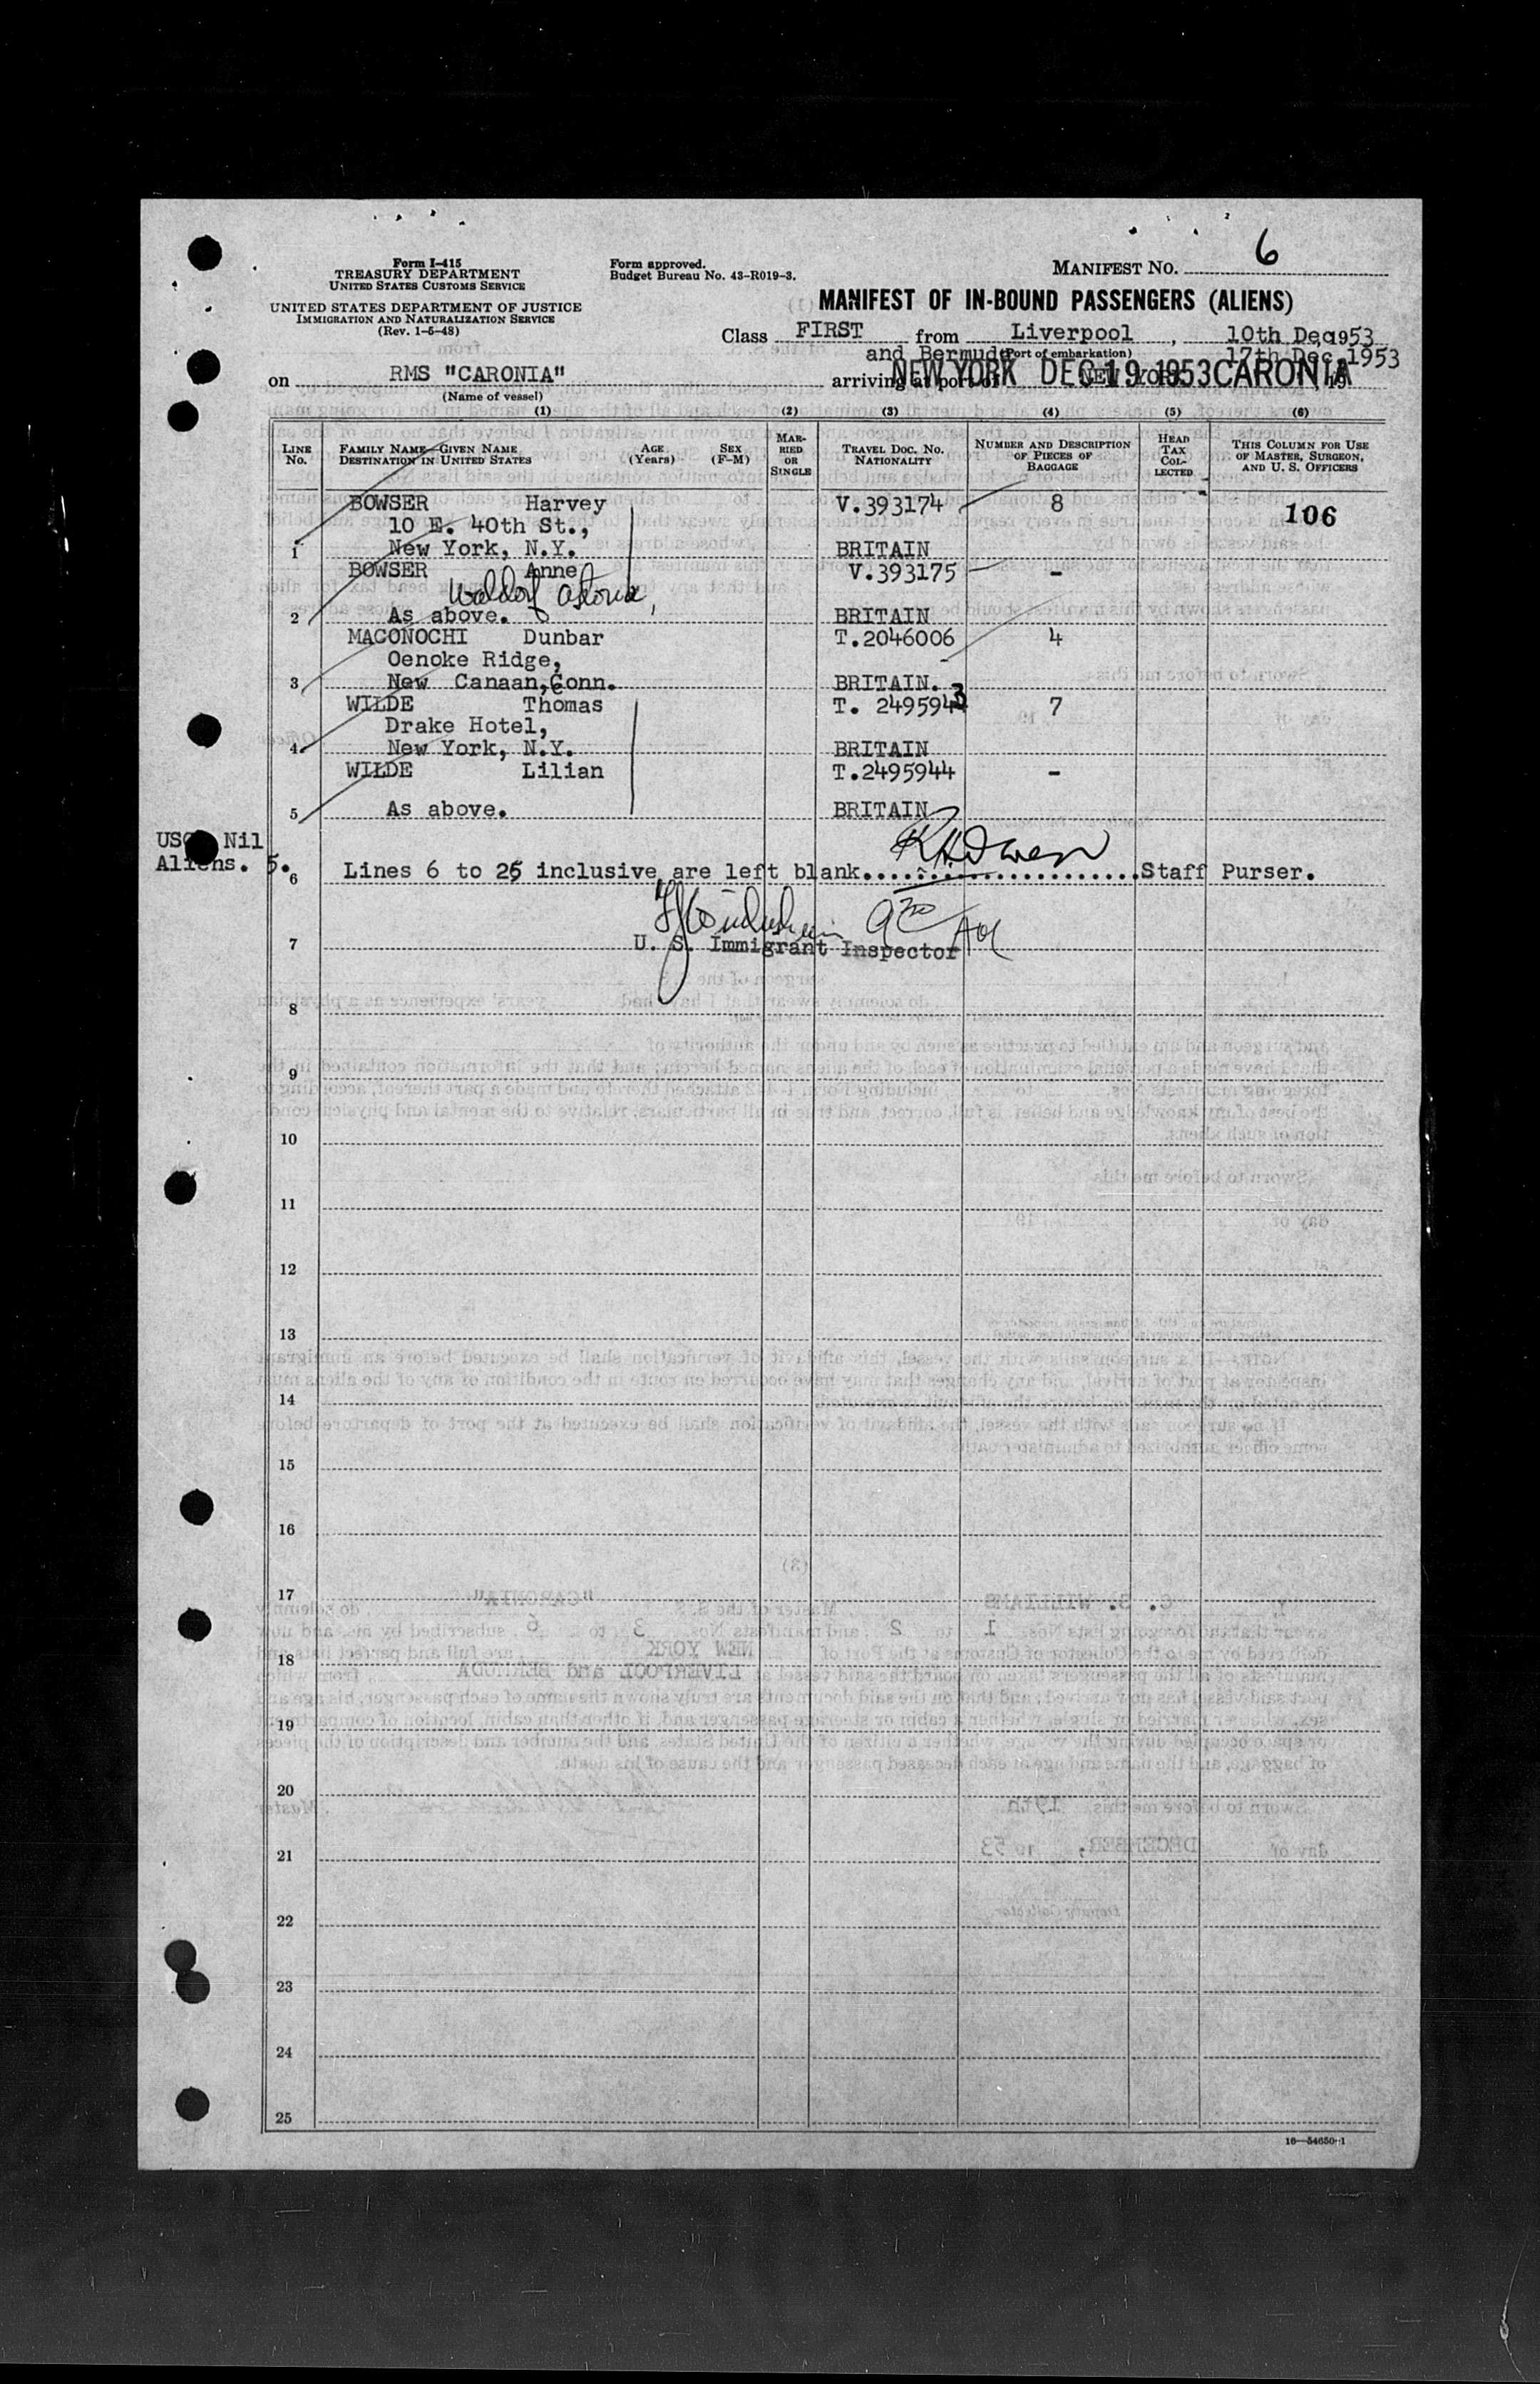 6
Form I-415
TREASURY DEPARTMENT
UNITED STATES CUSTOMS SERVICE
Form approved.
Budget Bureau No. 43-R019-3.
MANIFEST NO.
UNITED STATES DEPARTMENT OF JUSTICE
IMMIGRATION AND NATURALIZATION SERVICE
(Rev. 1-5-48)
MANIFEST OF IN-BOUND PASSENGERS (ALIENS)
Class FIRST from Liverpool, 10th Dec 1953
and Bermuda (Port of embarkation) 17th Dec 1953
on RMS "CARONIA" arriving at port of NEW YORK, 19
NEW YORK DEC 19 1953 CARONIA
(Name of vessel)
(1) (2) (3) (4) (5) (6)
LINE No.
FAMILY NAME—GIVEN NAME
DESTINATION IN UNITED STATES
AGE (Years)
SEX (F-M)
MARRIED OR SINGLE
TRAVEL DOC. NO.
NATIONALITY
NUMBER AND DESCRIPTION
OF PIECES OF
BAGGAGE
HEAD TAX COLLECTED
THIS COLUMN FOR USE
OF MASTER, SURGEON,
AND U. S. OFFICERS
BOWSER Harvey V.393174 8 106
10 E. 40th St.,
1 New York, N.Y. BRITAIN
BOWSER Anne V.393175 -
Waldorf Astoria,
2 As above. BRITAIN
MACONOCHI Dunbar T.2046006 4
Oenoke Ridge,
3 New Canaan, Conn. BRITAIN.
WILDE Thomas T. 2495943 7
Drake Hotel,
4 New York, N.Y. BRITAIN
WILDE Lilian T.2495944 -
5 As above. BRITAIN
USC. Nil
Aliens. 5.
6 Lines 6 to 25 inclusive are left blank. Staff Purser.
7 U. S. Immigrant Inspector
8
9
10
11
12
13
14
15
16
17
18
19
20
21
22
23
24
25
16—54650-1